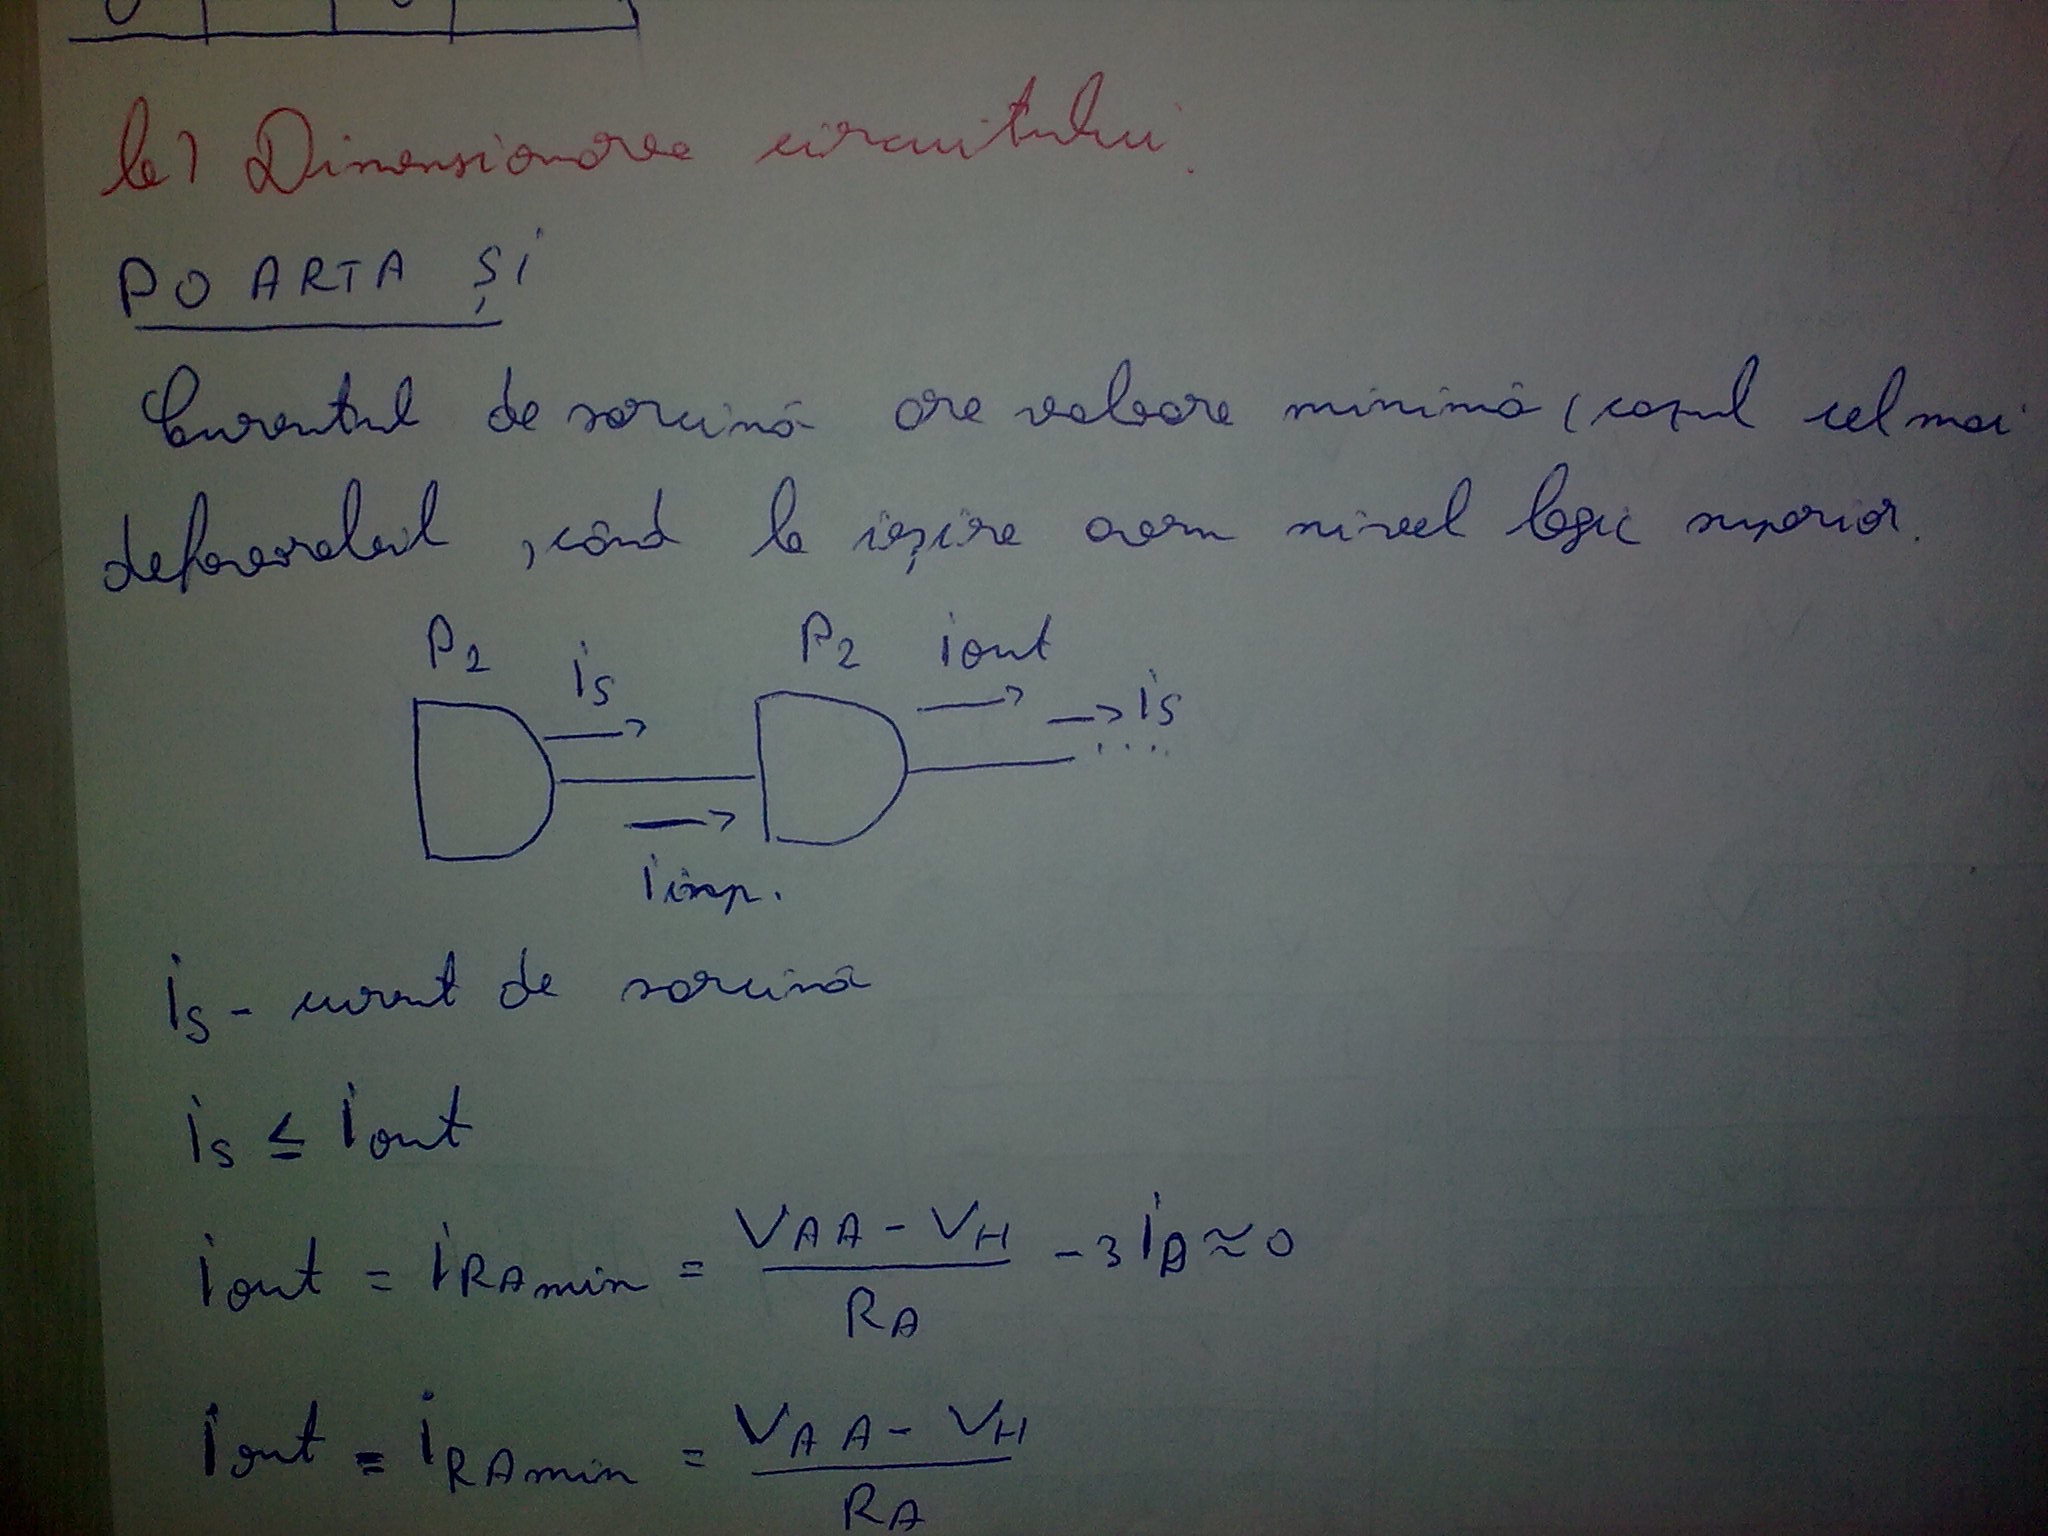 b) Dimensionarea circuitului.
POARTA ȘI
Curentul de sarcină are valoare minimă (cazul cel mai
defavorabil, când la ieșire avem nivel logic superior.
P2 is P2 iout
→ is
....
iinp.
is - curent de sarcină
is ≤ iout
iout = iRAmin = (VAA - VH) / RA - 3 iD ≈ 0
iout = iRAmin = (VAA - VH) / RA